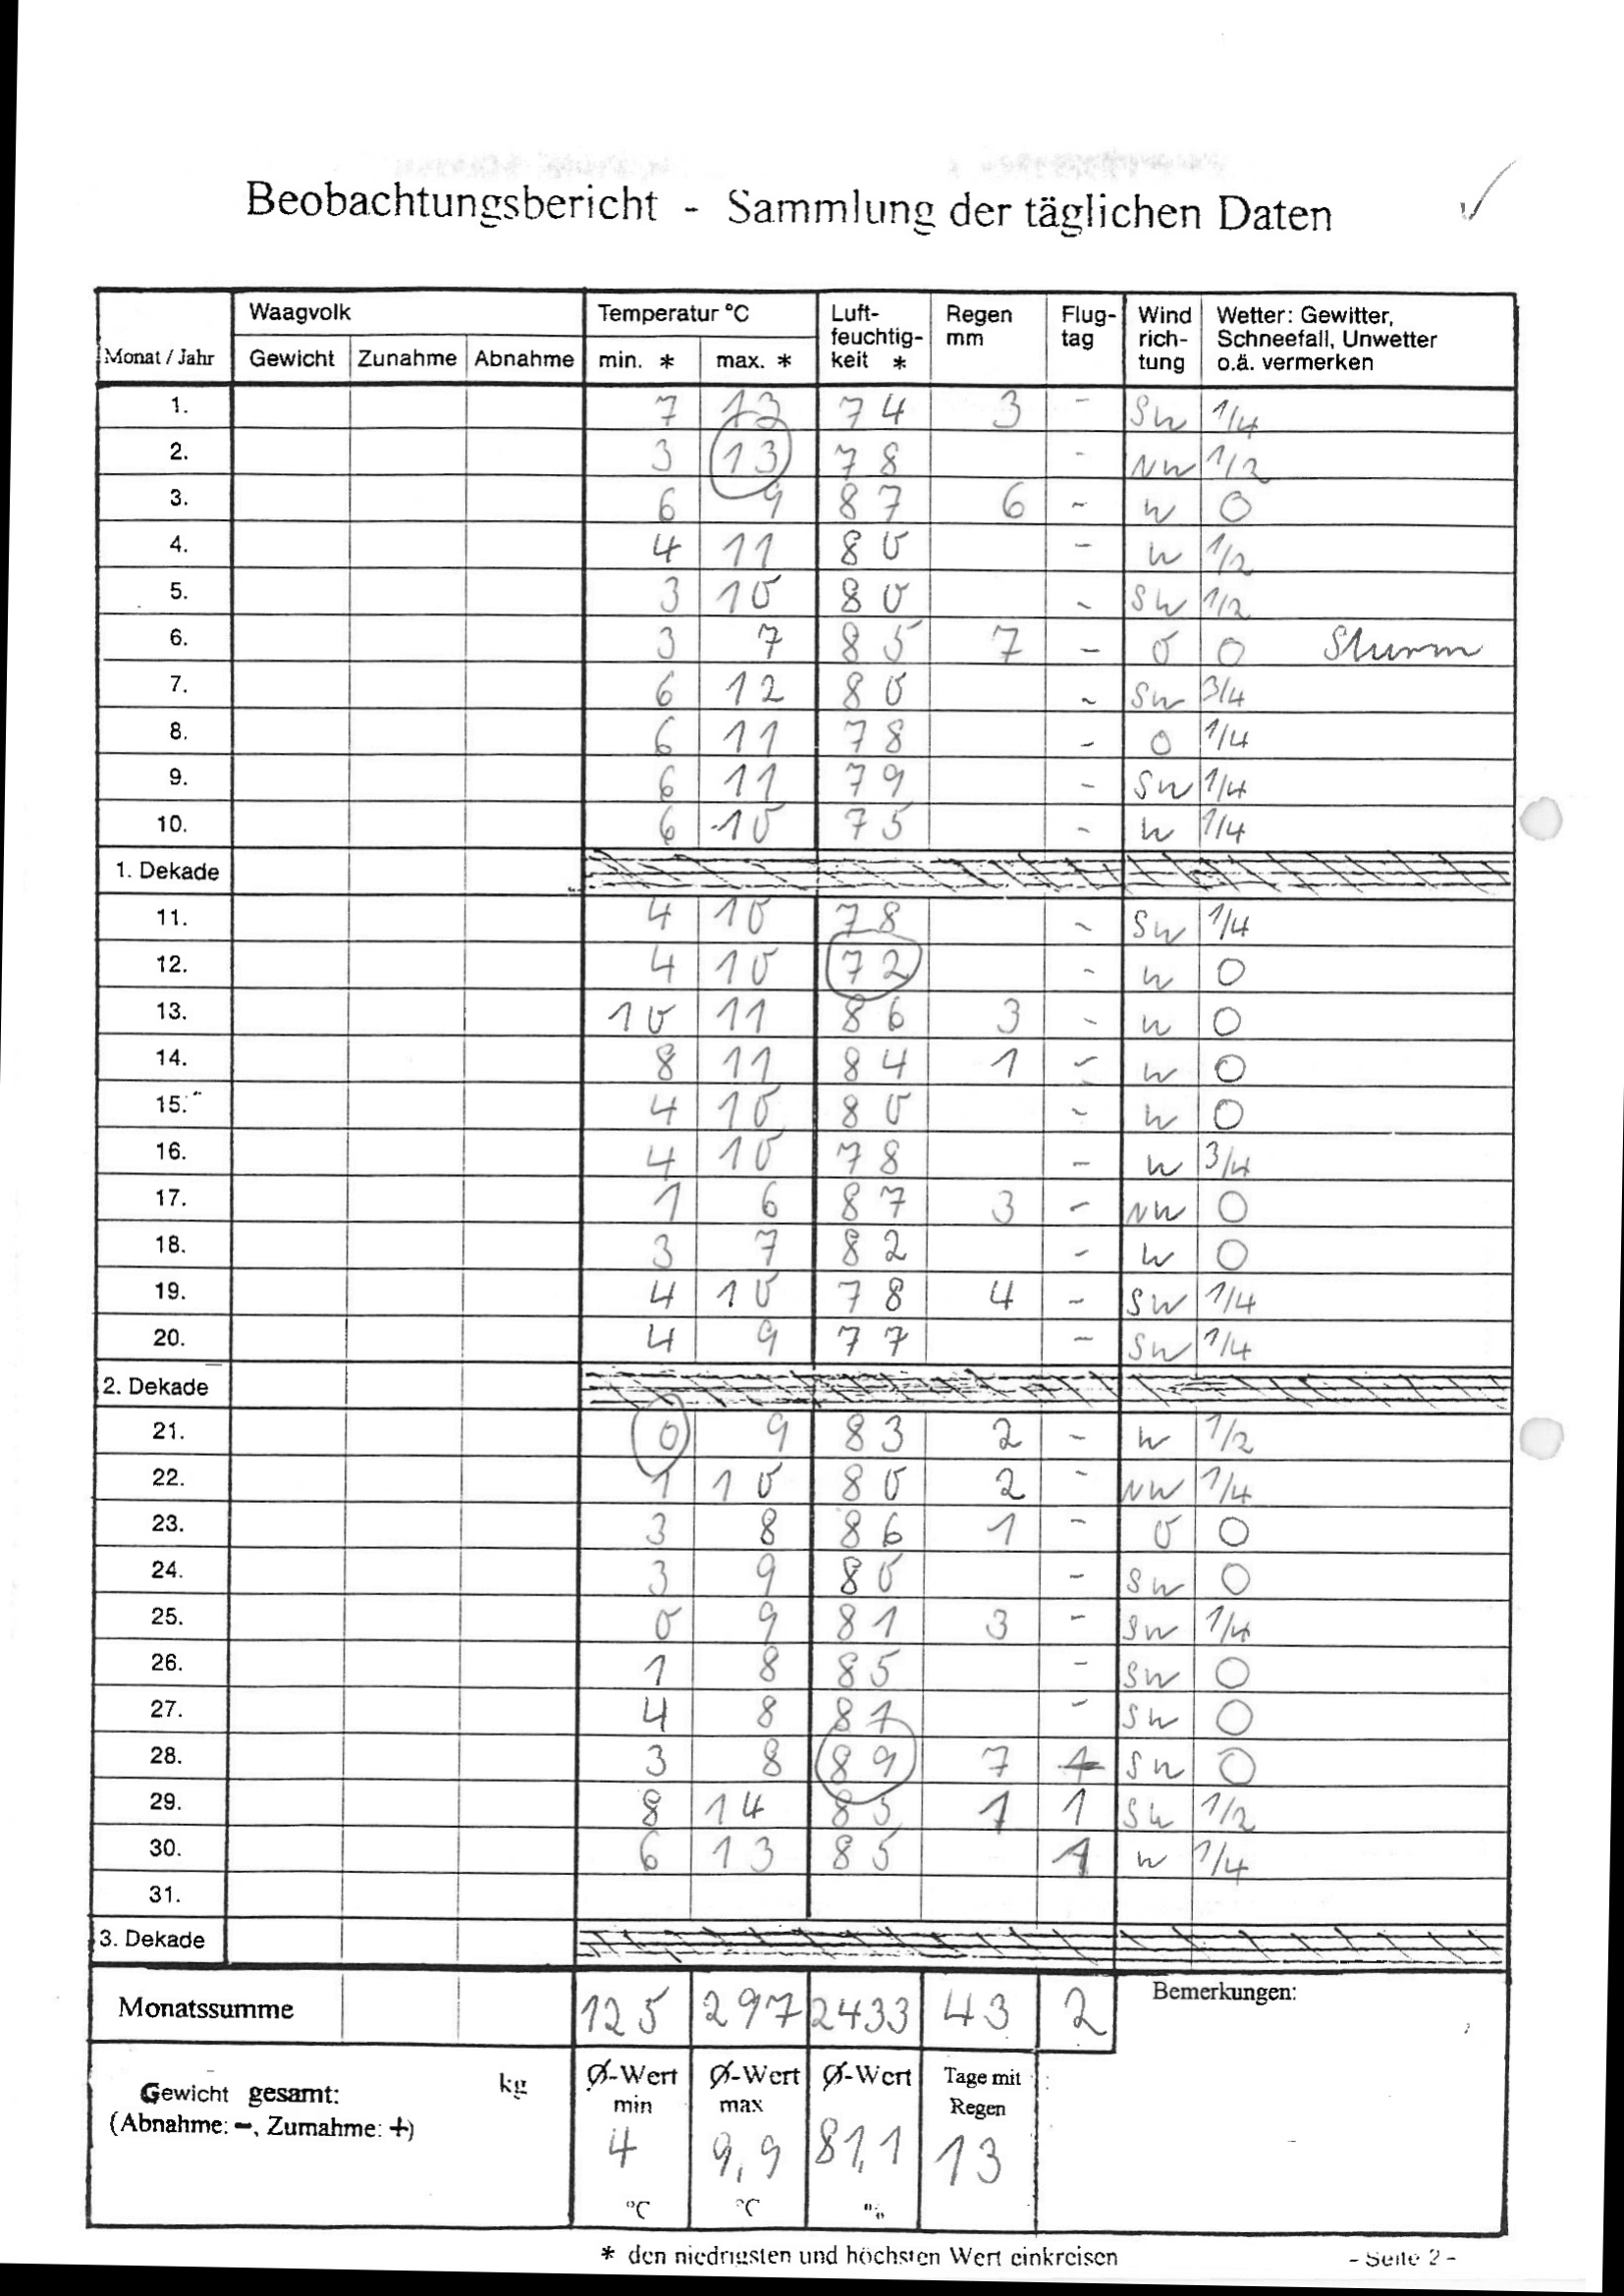 Beobachtungsbericht - Sammlung der täglichen Daten ✓
Monat / Jahr Waagvolk Temperatur °C Luft-feuchtig-keit * Regen mm Flug-tag Wind rich-tung Wetter: Gewitter, Schneefall, Unwetter o.ä. vermerken
Gewicht Zunahme Abnahme min. * max. *
1. 7 13 74 3 - SW 1/4
2. 3 13 78 - NW 1/2
3. 6 9 87 6 - W O
4. 4 11 80 - W 1/2
5. 3 10 80 - SW 1/2
6. 3 7 85 7 - O O Sturm
7. 6 12 80 - SW 3/4
8. 6 11 78 - O 1/4
9. 6 11 79 - SW 1/4
10. 6 10 75 - W 1/4
1. Dekade
11. 4 10 78 - SW 1/4
12. 4 10 72 - W O
13. 10 11 86 3 - W O
14. 8 11 84 1 - W O
15. 4 10 80 - W O
16. 4 10 78 - W 3/4
17. 1 6 87 3 - NW O
18. 3 7 82 - W O
19. 4 10 78 4 - SW 1/4
20. 4 9 77 - SW 1/4
2. Dekade
21. 0 9 83 2 - W 1/2
22. 1 10 80 2 - NW 1/4
23. 3 8 86 1 - O O
24. 3 9 80 - SW O
25. 0 9 81 3 - SW 1/4
26. 1 8 85 - SW O
27. 4 8 81 - SW O
28. 3 8 89 7 SW O
29. 8 14 85 1 1 SW 1/2
30. 6 13 85 1 W 1/4
31.
3. Dekade
Monatssumme 125 297 2433 43 2 Bemerkungen:
Gewicht gesamt: kg Ø-Wert min Ø-Wert max Ø-Wert Tage mit Regen
(Abnahme: -, Zumahme: +)
4 9,9 81,1 13
°C °C %
* den niedrigsten und höchsten Wert einkreisen - Seite 2 -